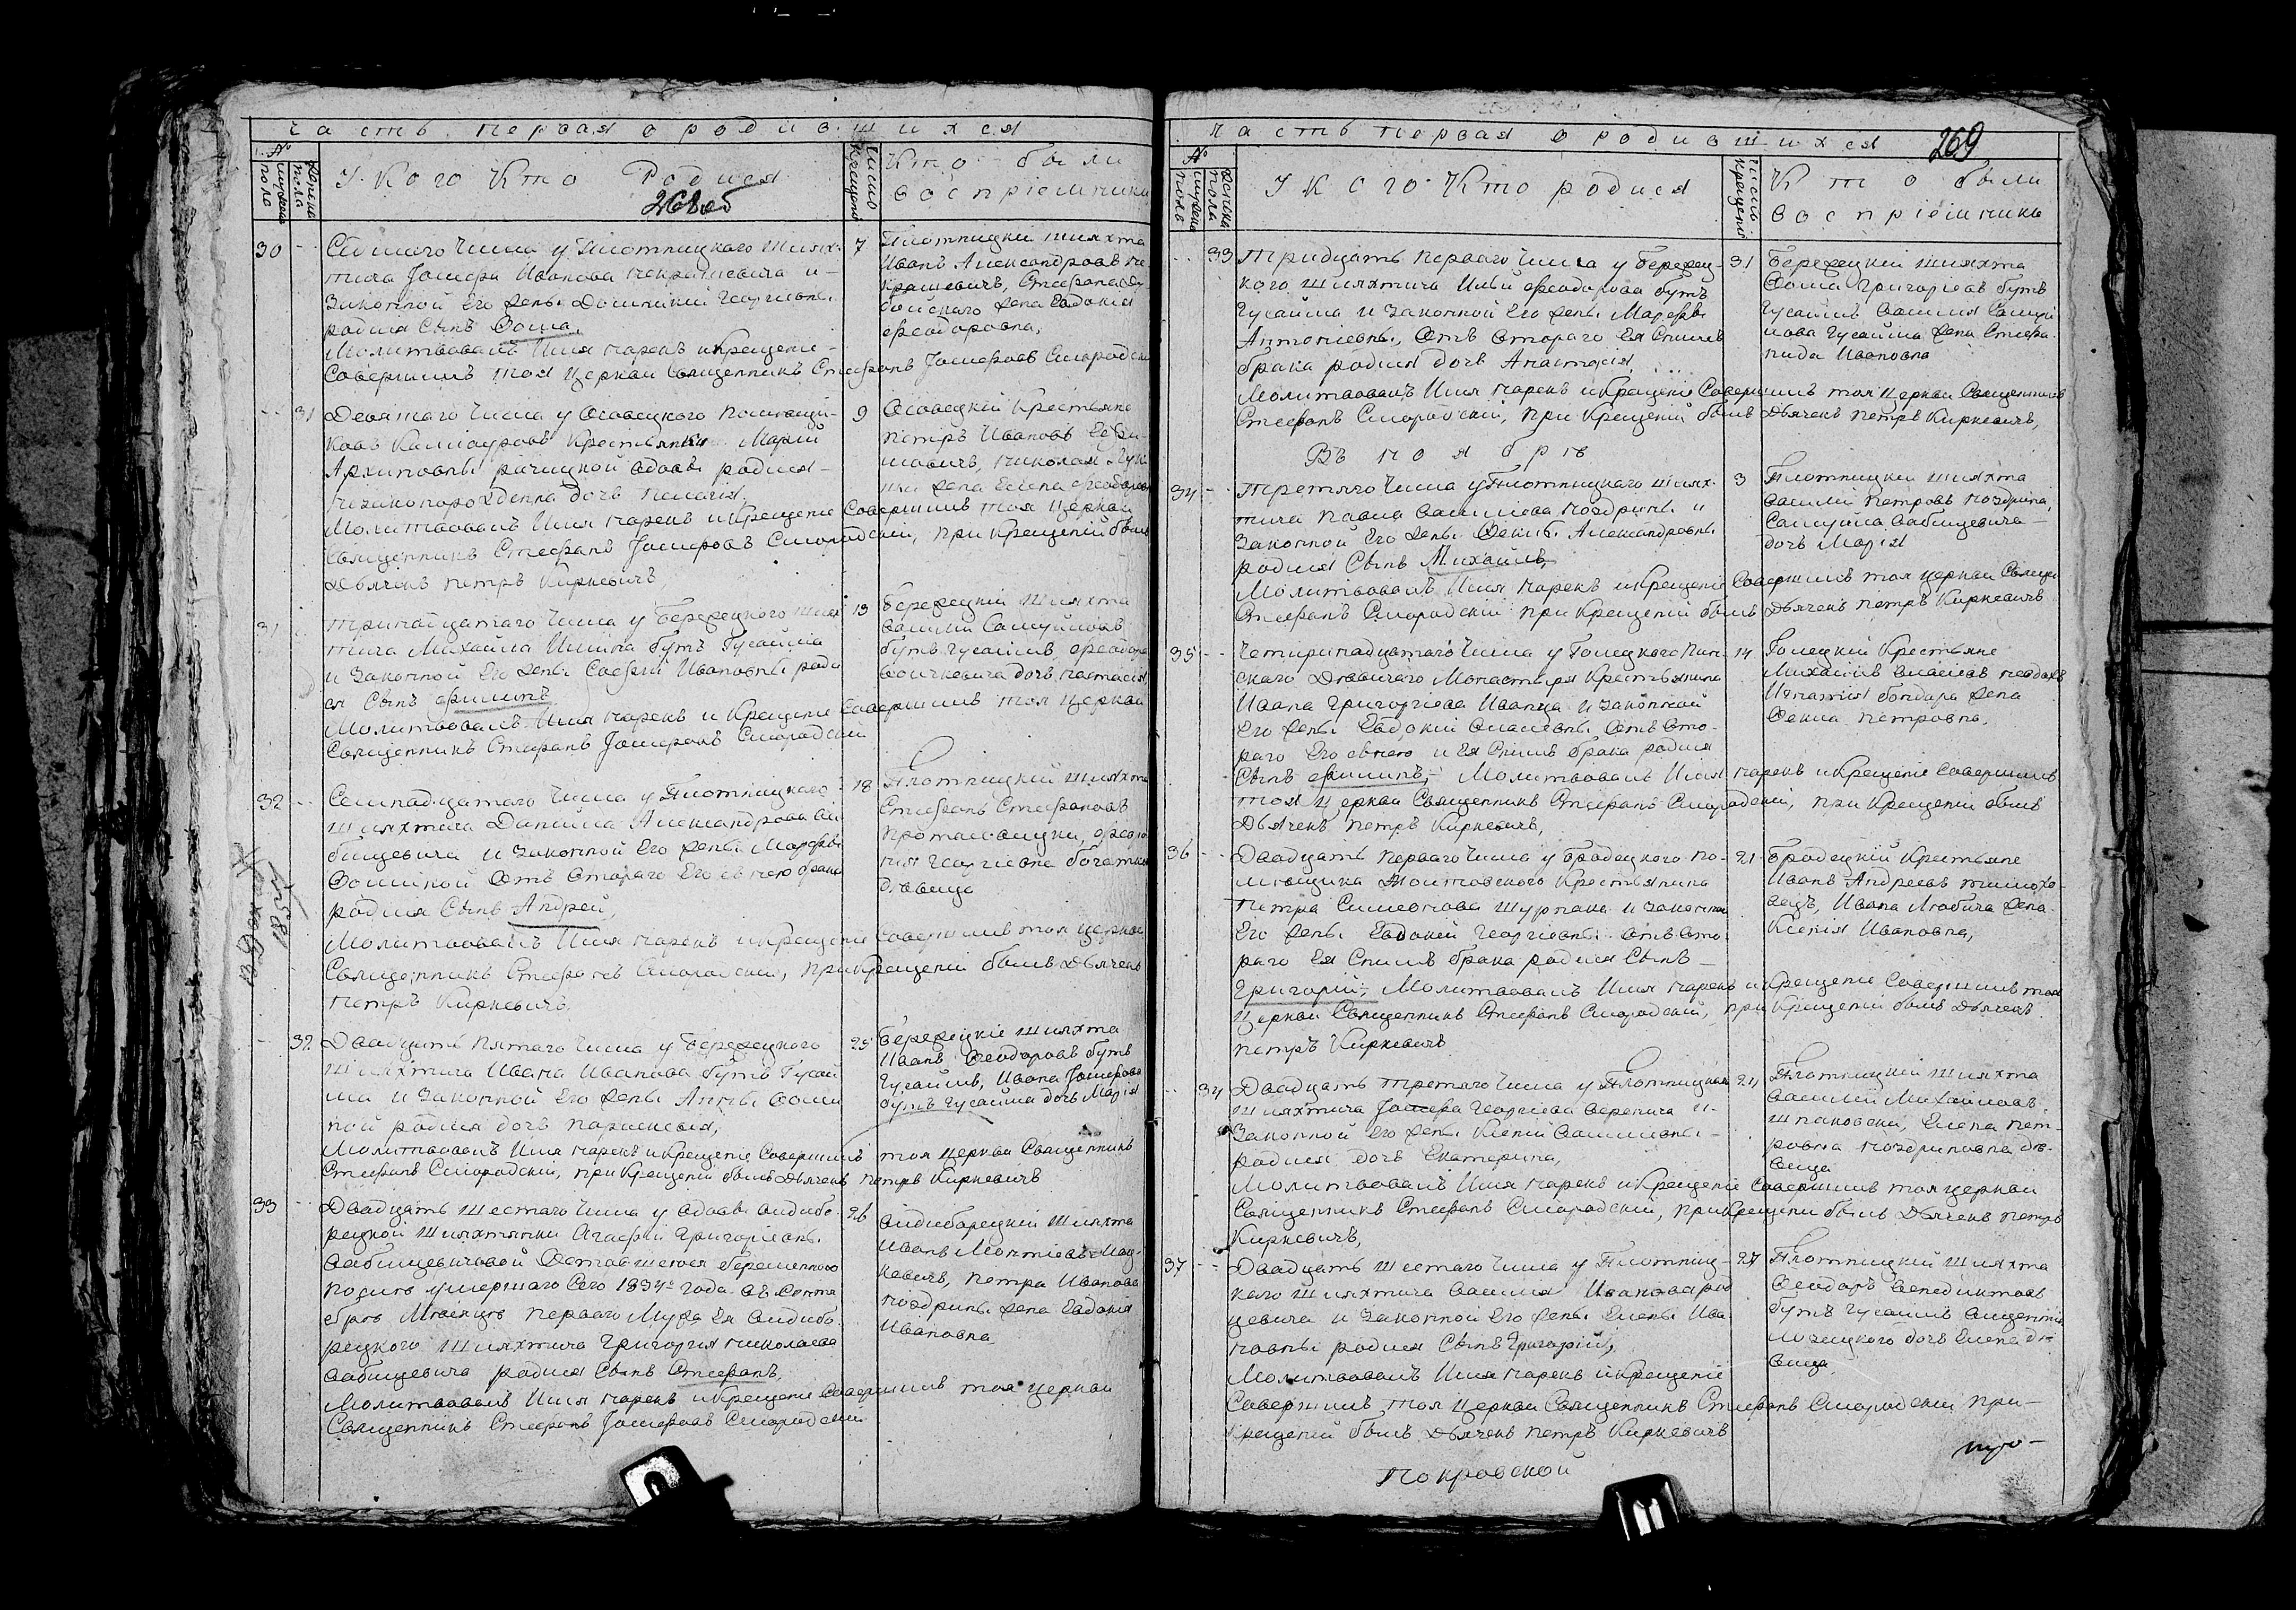 часть первая о родившихся
№
мужеска пола
женска пола
У Кого Кто Родился
268об
Число крещенія
Кто были
воспріемники
30
Седмаго Числа у Плотницкого Шлях-
тича Іосифа Иванова Некрашевича и
Законной Его жены Домникіи Георгіевны
родился Сынъ Фома,
Молитвовалъ Имя нарекъ и крещеніе
Совершилъ тоя церкви Священникъ Стефанъ Іосифовъ Смородскій
7
Плотницкій шляхта
Иванъ Александровъ Не-
крашевичъ, Стефана
жена Евдокія
Феодоровна,
31
Девятаго Числа у Осовецкого Помещи-
ковъ Крестьянки Маріи
Архиповны речицкой вдовы родилась
незаконорожденна дочь Пелагія,
Молитвовалъ Имя нарекъ и Крещеніе Совершилъ тоя Церкви
Священникъ Стефанъ Іосифовъ Смородскій, при Крещеніи былъ
Дьячекъ Петръ Киркевичъ
9
Осовецкій Крестьяне
Петръ Ивановъ
Николая
жена Елена Феодоровна
31
Тринадцатаго Числа у Бережецкого Шлях-
тича Михаила Ильина бутъ Гусаима
и Законной Его жены Софіи Ивановны роди
ся Сынъ Филипъ
Молитвовалъ Имя нарекъ и Крещеніе Совершилъ тоя Церкви
Священникъ Стефанъ Іосифовъ Смородскій
13
Бережецкій Шляхта
Василій Самуиловъ
бутъ Гусаимъ, Феодора
Войчкевича дочь Настасія
32
Семнадцатаго Числа у Плотницкаго
Шляхтича Даниила Александрова Ва
бищевича и Законной Его жены Марфы
Фоминой Отъ Втораго Его съ нею брака
родился Сынъ Андрей,
Молитвовалъ Имя нарекъ и Крещеніе Совершилъ тоя церкви
Священникъ Стефанъ Смородскій, при Крещеніи былъ Дьячекъ
Петръ Киркевичъ,
18
Плотницкій шляхта
Стефанъ Стефановъ
Протасовицкій,
Георгіевна
Дѣвица
32
Двадцать пятаго Числа у Бережецкого
Шляхтича Ивана Иванова бутъ Гусаи
ма и Законной Его жены Анны Фоми
ной родился дочь Параскевія,
Молитвовалъ Имя нарекъ и Крещеніе Совершилъ тоя Церкви Священникъ
Стефанъ Смородскій, при Крещеніи былъ Дьячекъ Петръ Киркевичъ
25
Бережецкіе Шляхта
Иванъ Феодоровъ бутъ
Гусаимъ, Ивана Іосифова
бутъ Гусаима дочь Марія
33
Двадцать Шестаго Числа у вдовы видибо-
рецкой Шляхтянки Агафіи Григоріевны
Вабищевичовой Оставшеюся беременною
после умершаго Сего 1834 года въ Сентя
брѣ Мѣсяцѣ Перваго Мужа Ея Видибо
рецкого Шляхтича Григорія Николаева
Вабищевича родился Сынъ Стефанъ,
Молитвовалъ Имя нарекъ и Крещеніе Совершилъ тоя Церкви
Священникъ Стефанъ Іосифовъ Смородскій
26
Видиборецкій Шляхта
Иванъ
Петра Иванова
Ноздрины жена Евдокія
Ивановна
часть первая о родившихся
269
№
мужеска пола
женска пола
У Кого Кто родился
Число крещенія
Кто были
воспріемники
33
Тридцать перваго Числа у Бережец-
кого шляхтича Ильи Феодорова бутъ
Гусаима и Законной Его жены Марфы
Антоніевны, Отъ Втораго Ея Снимъ
брака родился дочь Анастасія,
Молитвовалъ Имя нарекъ и Крещеніе Совершилъ тоя Церкви Священникъ
Стефанъ Смородскій, при Крещеніи былъ Дьячекъ Петръ Киркевичъ,
31
Бережецкій шляхта
Фома Григоріевъ бутъ
Гусаимъ Василія Самуи
лова Гусаима жена Стефа
нида Ивановна
Въ ноябрѣ
34
Третяго Числа у Плотницкаго Шлях-
тича Павла Василіева Ноздрины и
Законной Его жены Феклы Александровны
родился Сынъ Михаилъ,
Молитвовалъ Имя нарекъ и Крещеніе Совершилъ тоя церкви Священ
Стефанъ Смородскій при Крещеніи былъ Дьячекъ Петръ Киркевичъ
3
Плотницкій шляхта
Василій Петровъ Ноздрина,
Самуила Вабищевича
дочь Марія
35
Четирнадцатаго Числа у Голецкого Пин-
скаго Дѣвичаго Монастиря Крестьянина
Ивана Григоргіева Иванца и законной
Его жены Евдокіи Власіевны Отъ Вто-
раго Его съ нею и Ея Снимъ брака родился
Сынъ Филипъ, Молитвовалъ Имя нарекъ и Крещеніе Совершилъ
тоя Церкви Священникъ Стефанъ Смородскій, при Крещеніи былъ
Дьячекъ Петръ Киркевичъ,
14
Голецкій Крестьяне
Михаилъ Власіевъ
Игнатія бондара жена
Фекла Петровна,
36
Двадцать перваго Числа у Бродецкого По-
мѣщика Крестьянина
Петра Симеонова Шурпака и Законной
Его жены Евдокіи Георгіевны Отъ Вто
раго Ея Снимъ брака родился Сынъ
Григорій, Молитвовалъ Имя нарекъ и Крещеніе Совершилъ тоя
Церкви Священникъ Стефанъ Смородскій, при Крещеніи былъ Дьячекъ
Петръ Киркевичъ
21
Бродецкій Крестьяне
Иванъ Андреевъ
Ивана Любича жена
Ксенія Ивановна,
34
Двадцать третяго Числа у Плотницкаго
Шляхтича Іосифа Георгіева Веренича и
Законной Его жены Ксеніи Василіевны
родился дочь Екатерина,
Молитвовалъ Имя нарекъ и Крещеніе Совершилъ тоя церкви
Священникъ Стефанъ Смородскій, при Крещеніи былъ Дьячекъ Петръ
Киркевичъ,
24
Плотницкій шляхта
Василій Михаиловъ
Шпаковскій, Елена Пет-
ровна Ноздриновна дѣ-
вица
37
Двадцать шестаго Числа у Плотниц-
кого шляхтича Василія Иванова
цевича и Законной Его жены Елены Ива
новны родился Сынъ Григорій,
Молитвовалъ Имя нарекъ и Крещеніе
Совершилъ тоя Церкви Священникъ Стефанъ Смородскій при
Крещеніи былъ Дьячекъ Петръ Киркевичъ
27
Плотницкій Шляхта
Феодоръ Венедиктовъ
бутъ Гусаимъ Викентія
дочь Елена дѣ
вица
Покровской